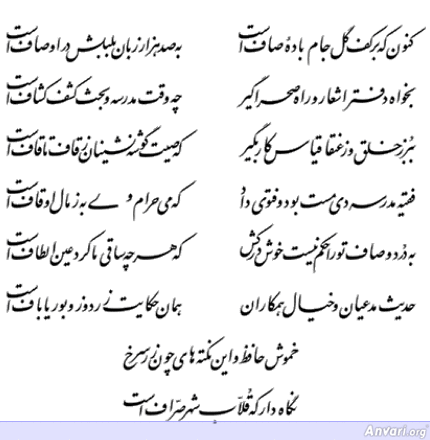 کنون که بر کف گل جام باده صاف است به صد هزار زبان بلبلش در اوصاف است
بخواه دفتر اشعار و راه صحرا گیر چه وقت مدرسه و بحث کشف کشاف است
ببر ز خلق و ز عنقا قیاس کار بگیر که صیت گوشه نشینان ز قاف تا قاف است
فقیه مدرسه دی مست بود و فتوی داد که می حرام ولی به ز مال اوقاف است
به درد و صاف تو را حکم نیست خوش درکش که هر چه ساقی ما کرد عین الطاف است
حدیث مدعیان و خیال همکاران همان حکایت زردوز و بوریاباف است
خموش حافظ و این نکته های چون زر سرخ
نگاه دار که قلاب شهر صراف است
Anvari.org